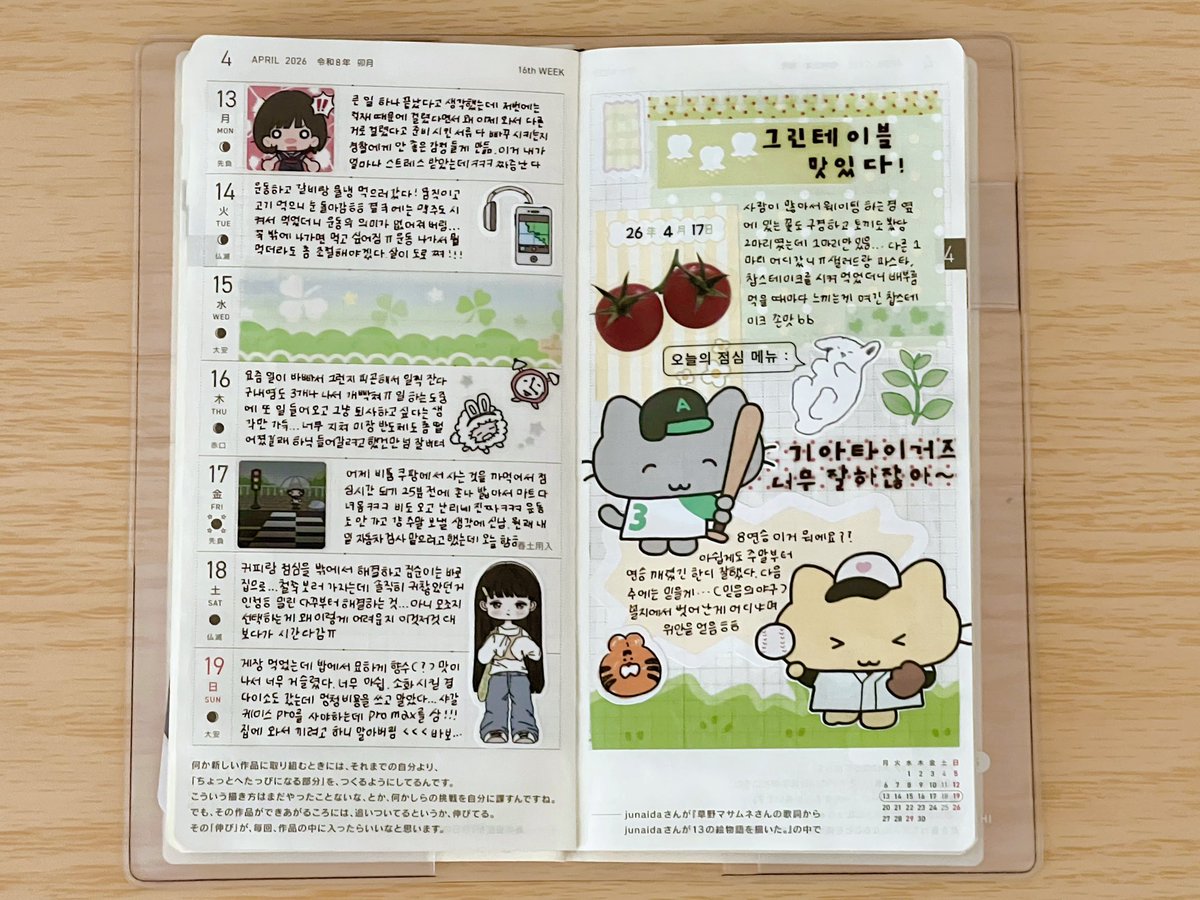 4 APRIL 2026 令和8年 卯月
16th WEEK
13
月
MON
先負
큰 일 하나 끝났다고 생각했는데 저번에는
때문에 걸렸다면서 왜 이제 와서 다른
거로 걸렸다고 준비 시킨 서류 다 바꾸 시키는지
경찰에게 안 좋은 감정 들게 만듦. 이거 내가
얼마나 스트레스 받았는데 ㅋㅋㅋ 짜증난다
14
火
TUE
仏滅
운동하고 갈비랑 물냉 먹으러 갔다! 움직이고
고기 먹으니 눈 돌아감ㅎㅎ 결국에는 맥주도 시
켜서 먹었더니 운동의 의미가 없어져 버림...
꼭 밖에 나가면 먹고 싶어짐 ㅠ 운동 나가서 뭘
먹더라도 좀 조절해야겠다 살이 도로 쪄!!!
15
水
WED
大安
16
木
THU
赤口
요즘 일이 바빠서 그런지 피곤해서 일찍 잔다
구내염도 3개나 나서 개빡쳐ㅠ 일 하는 도중
에 또 일 들어오고 그냥 퇴사하고 싶다는 생
각만 가득... 너무 지쳐 미장 반도체도 좀 떨
어졌길래 하닉 들어갈려고 했건만 넘 잘 버텨
17
金
FRI
先負
어제 비툴 쿠팡에서 사는 것을 까먹어서 점
심시간 되기 25분 전에 존나 밟아서 마트 다
녀옴ㅋㅋㅋ 비도 오고 난리네 진짜ㅋㅋㅋ 운동
도 안 가고 걍 주말 보낼 생각에 신남. 원래 내
일 자동차 검사 맡으려고 했는데 오늘 함ㅎ
春土用入
18
土
SAT
仏滅
커피랑 점심을 밖에서 해결하고 집순이는 바로
집으로... 철쭉 보러 가자는데 솔직히 귀찮았던 거
인정ㅎ 밀린 다꾸부터 해결하는 것... 아니 오쏘지
선택하는게 왜 이렇게 어려움지 이것저것 대
보다가 시간 다 감ㅠ
19
日
SUN
大安
게장 먹었는데 밤에서 묘하게 향수(?) 맛이
나서 너무 거슬렸다. 너무 아쉽. 소화 시킬 겸
다이소도 갔는데 멍청비용을 쓰고 말았다... 샤갈
케이스 pro를 사야하는데 pro max를 삼!!!
집에 와서 끼려고 하니 알아버림 <<< 바보...
何か新しい作品に取り組むときには、それまでの自分より、
「ちょっとへたっぴになる部分」を、つくるようにしてるんです。
こういう描き方はまだやったことないな、とか、何かしらの挑戦を自分に課すんですね。
でも、その作品ができあがるころには、追いついてるというか、伸びてる。
その「伸び」が、毎回、作品の中に入ったらいいなと思います。
그린테이블
맛있다!
26年 4月 17日
사람이 많아서 웨이팅 하는 겸 옆
에 있는 꽃도 구경하고 토끼도 봤당
2마리였는데 1마리만 있음... 다른 1
마리 어디갔니 ㅠ 샐러드랑 파스타,
찹스테이크를 시켜 먹었더니 배부름
먹을 때마다 느끼는게 여긴 찹스테
이크 존맛 bb
4
오늘의 점심 메뉴 :
A
3
기아타이거즈
너무 잘하잖아~
8연승 이거 뭐에요?!
아쉽게도 주말부터
연승 깨졌긴 한디 잘했다. 다음
주에는 믿을게... (믿음의 야구?)
꼴지에서 벗어난게 어디냐며
위안을 얻음ㅎㅎ
月 火 水 木 金 土 日
1 2 3 4 5
6 7 8 9 10 11 12
13 14 15 16 17 18 19
20 21 22 23 24 25 26
27 28 29 30
junaidaさんが『草野マサムネさんの歌詞から
junaidaさんが13の絵物語を描いた。』の中で